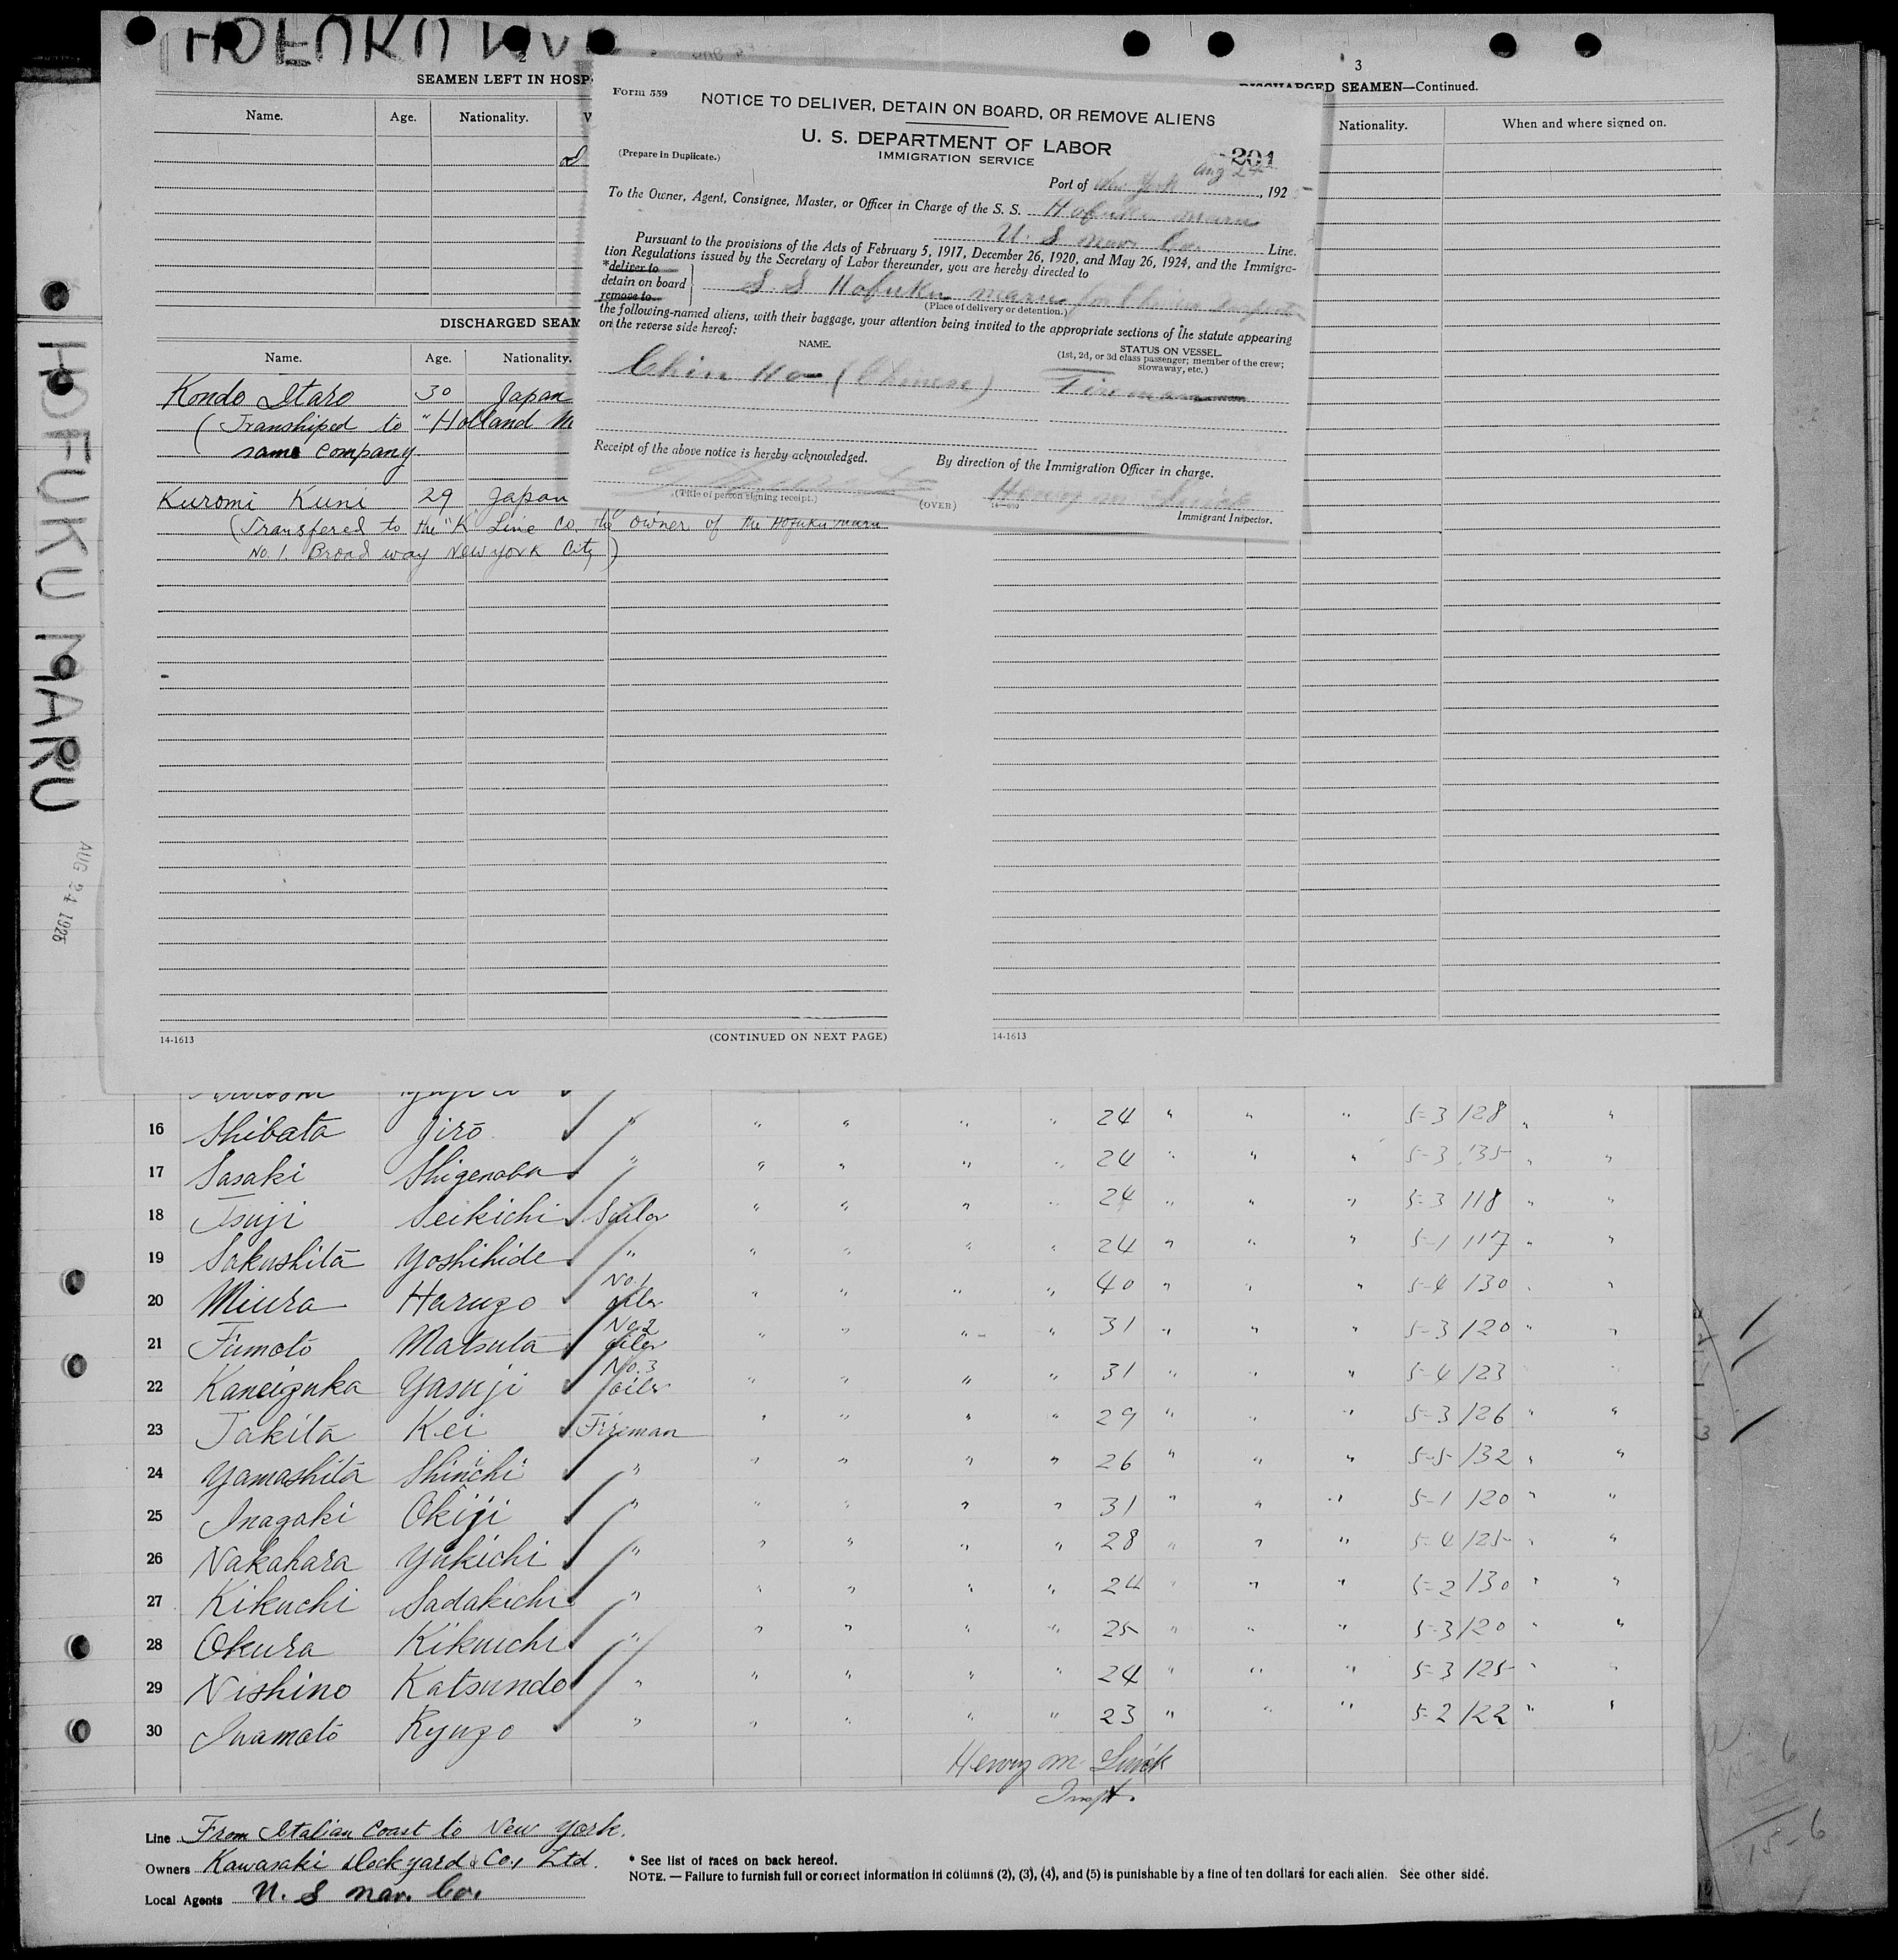 HOFUKU MARU
2
SEAMEN LEFT IN HOSP
Name. Age. Nationality.
3
DISCHARGED SEAMEN—Continued.
Nationality. When and where signed on.
Form 559
NOTICE TO DELIVER, DETAIN ON BOARD, OR REMOVE ALIENS
U. S. DEPARTMENT OF LABOR
IMMIGRATION SERVICE
(Prepare in Duplicate.)
201
Port of New York Aug 24, 1925
To the Owner, Agent, Consignee, Master, or Officer in Charge of the S. S. Hofuku Maru
U. S nav. Co. Line.
Pursuant to the provisions of the Acts of February 5, 1917, December 26, 1920, and May 26, 1924, and the Immigra-
tion Regulations issued by the Secretary of Labor thereunder, you are hereby directed to
*deliver to
detain on board
remove to
S. S Hofuku maru for Chinese Inspector
(Place of delivery or detention.)
the following-named aliens, with their baggage, your attention being invited to the appropriate sections of the statute appearing
on the reverse side hereof:
NAME.
STATUS ON VESSEL
(1st, 2d, or 3d class passenger; member of the crew;
stowaway, etc.)
Chin Ho (Chinese) Fireman
Receipt of the above notice is hereby acknowledged.
By direction of the Immigration Officer in charge.
(Title of person signing receipt.)
(OVER)
Immigrant Inspector.
DISCHARGED SEAM
Name. Age. Nationality.
Kondo Itaro 30 Japan
(Transhiped to "Holland M
same company
Kuromi Kuni 29 Japan
(Transfered to the "K" Line Co. the owner of the Hofuku maru
No. 1. Broad way New york City)
14-1613
(CONTINUED ON NEXT PAGE)
14-1613
HOFUKU MARU
AUG 24 1925
16 Shibata Jiro " " " " " 24 " " " 5-3 128 " "
17 Sasaki Shigenobu " " " " " 24 " " " 5-3 135 " "
18 Tsuji Seikichi Sailor " " " " 24 " " " 5-3 118 " "
19 Sakushita Yoshihide " " " " " 24 " " " 5-1 117 " "
20 Miura Haruzo No. 1 oiler " " " " 40 " " " 5-4 130 " "
21 Fumoto Matsuta No. 2 oiler " " " " 31 " " " 5-3 120 " "
22 Kaneizuka Yasuji No. 3 oiler " " " " 31 " " " 5-4 123
23 Takita Kei Fireman " " " " 29 " " " 5-3 126 " "
24 Yamashita Shinichi " " " " " 26 " " " 5-5 132 " "
25 Inagaki Okiji " " " " " 31 " " " 5-1 120 " "
26 Nakahara Yukichi " " " " " 28 " " " 5-4 125 " "
27 Kikuchi Sadakichi " " " " " 24 " " " 5-2 130 " "
28 Okura Kikuichi " " " " " 25 " " " 5-3 120 " "
29 Nishino Katsundo " " " " " 24 " " " 5-3 125 " "
30 Iwamoto Ryuzo " " " " " 23 " " " 5-2 122 " "
Henry M
Inspt.
Line From Italian Coast to New York.
Owners Kawasaki Dockyard Co., Ltd.
Local Agents U. S nav. Co.
* See list of races on back hereof.
NOTE. — Failure to furnish full or correct information in columns (2), (3), (4), and (5) is punishable by a fine of ten dollars for each alien. See other side.